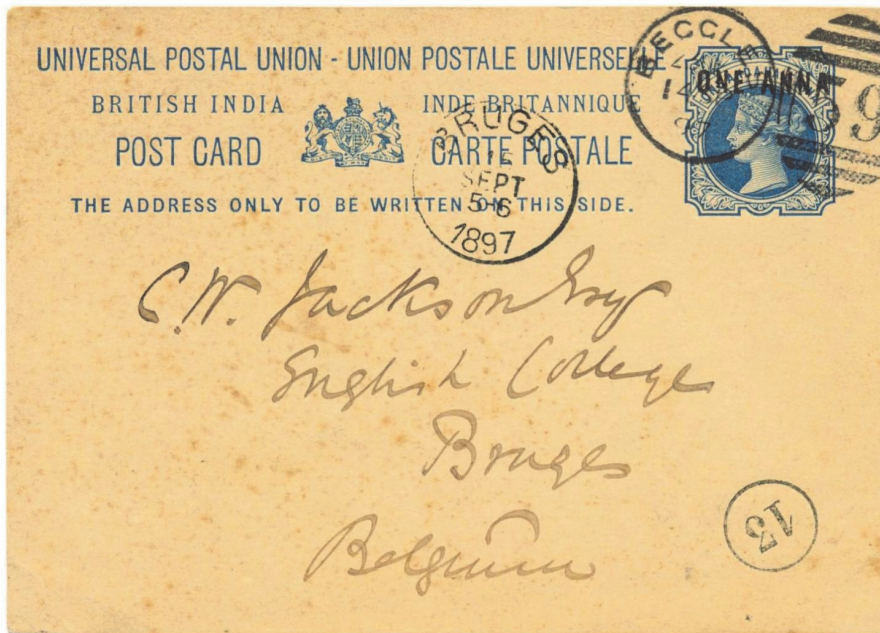 UNIVERSAL POSTAL UNION - UNION POSTALE UNIVERSELLE
BRITISH INDIA
INDE BRITANNIQUE
POST CARD
CARTE POSTALE
THE ADDRESS ONLY TO BE WRITTEN ON THIS SIDE.
ONE ANNA
BECCLE
9
BRUGES
SEPT
5-6
1897
C. W. Jackson Esq
English College
Bruges
Belgium
13